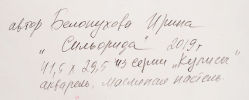 автор Белопухова Ирина
"Сильфрида" 2019г
41,5 х 29,5 из серии "Кулисы"
акварель, масляная пастель.